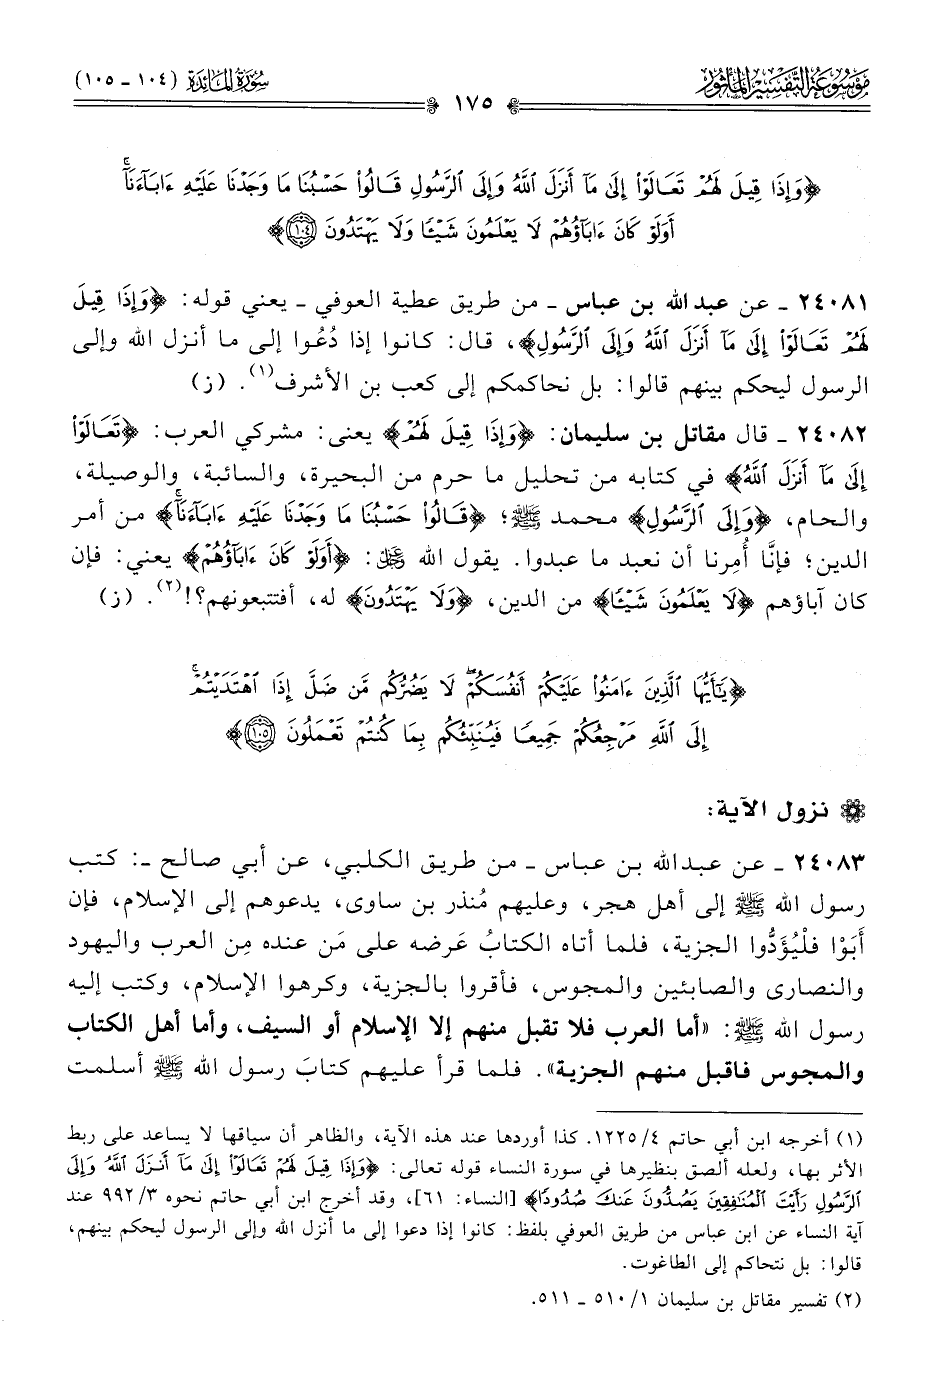 موسوعة التفسير المأثور
سورة المائدة (١٠٤ - ١٠٥)
١٧٥
﴿وَإِذَا قِيلَ لَهُمْ تَعَالَوْا۟ إِلَىٰ مَآ أَنزَلَ ٱللَّهُ وَإِلَى ٱلرَّسُولِ قَالُوا۟ حَسْبُنَا مَا وَجَدْنَا عَلَيْهِ ءَابَآءَنَآۚ
أَوَلَوْ كَانَ ءَابَآؤُهُمْ لَا يَعْلَمُونَ شَيْـًٔا وَلَا يَهْتَدُونَ ١٠٤﴾
٢٤٠٨١ - عن عبد الله بن عباس - من طريق عطية العوفي - يعني قوله: ﴿وَإِذَا قِيلَ
لَهُمْ تَعَالَوْا۟ إِلَىٰ مَآ أَنزَلَ ٱللَّهُ وَإِلَى ٱلرَّسُولِ﴾، قال: كانوا إذا دُعُوا إلى ما أنزل الله وإلى
الرسول ليحكم بينهم قالوا: بل نحاكمكم إلى كعب بن الأشرف(١). (ز)
٢٤٠٨٢ - قال مقاتل بن سليمان: ﴿وَإِذَا قِيلَ لَهُمْ﴾ يعني: مشركي العرب: ﴿تَعَالَوْا۟
إِلَىٰ مَآ أَنزَلَ ٱللَّهُ﴾ في كتابه من تحليل ما حرم من البحيرة، والسائبة، والوصيلة،
والحام، ﴿وَإِلَى ٱلرَّسُولِ﴾ محمد ﷺ؛ ﴿قَالُوا۟ حَسْبُنَا مَا وَجَدْنَا عَلَيْهِ ءَابَآءَنَآۚ﴾ من أمر
الدين؛ فإنَّا أُمِرنا أن نعبد ما عبدوا. يقول الله ﷻ: ﴿أَوَلَوْ كَانَ ءَابَآؤُهُمْ﴾ يعني: فإن
كان آباؤهم ﴿لَا يَعْلَمُونَ شَيْـًٔا﴾ من الدين، ﴿وَلَا يَهْتَدُونَ﴾ له، أفتتبعونهم؟!(٢). (ز)
﴿يَـٰٓأَيُّهَا ٱلَّذِينَ ءَامَنُوا۟ عَلَيْكُمْ أَنفُسَكُمْۖ لَا يَضُرُّكُم مَّن ضَلَّ إِذَا ٱهْتَدَيْتُمْۚ
إِلَى ٱللَّهِ مَرْجِعُكُمْ جَمِيعًا فَيُنَبِّئُكُم بِمَا كُنتُمْ تَعْمَلُونَ ١٠٥﴾
نزول الآية:
٢٤٠٨٣ - عن عبدالله بن عباس - من طريق الكلبي، عن أبي صالح -: كتب
رسول الله ﷺ إلى أهل هجر، وعليهم مُنذر بن ساوى، يدعوهم إلى الإسلام، فإن
أَبَوْا فلْيُؤَدُّوا الجزية، فلما أتاه الكتابُ عَرضه على مَن عنده مِن العرب واليهود
والنصارى والصابئين والمجوس، فأقروا بالجزية، وكرهوا الإسلام، وكتب إليه
رسول الله ﷺ: «أما العرب فلا تقبل منهم إلا الإسلام أو السيف، وأما أهل الكتاب
والمجوس فاقبل منهم الجزية». فلما قرأ عليهم كتابَ رسول الله ﷺ أسلمت
(١) أخرجه ابن أبي حاتم ١٢٢٥/٤. كذا أوردها عند هذه الآية، والظاهر أن سياقها لا يساعد على ربط
الأثر بها، ولعله ألصق بنظيرها في سورة النساء قوله تعالى: ﴿وَإِذَا قِيلَ لَهُمْ تَعَالَوْا۟ إِلَىٰ مَآ أَنزَلَ ٱللَّهُ وَإِلَى
ٱلرَّسُولِ رَأَيْتَ ٱلْمُنَـٰفِقِينَ يَصُدُّونَ عَنكَ صُدُودًا﴾ [النساء: ٦١]، وقد أخرج ابن أبي حاتم نحوه ٩٩٢/٣ عند
آية النساء عن ابن عباس من طريق العوفي بلفظ: كانوا إذا دعوا إلى ما أنزل الله وإلى الرسول ليحكم بينهم،
قالوا: بل نتحاكم إلى الطاغوت.
(٢) تفسير مقاتل بن سليمان ٥١٠/١ - ٥١١.